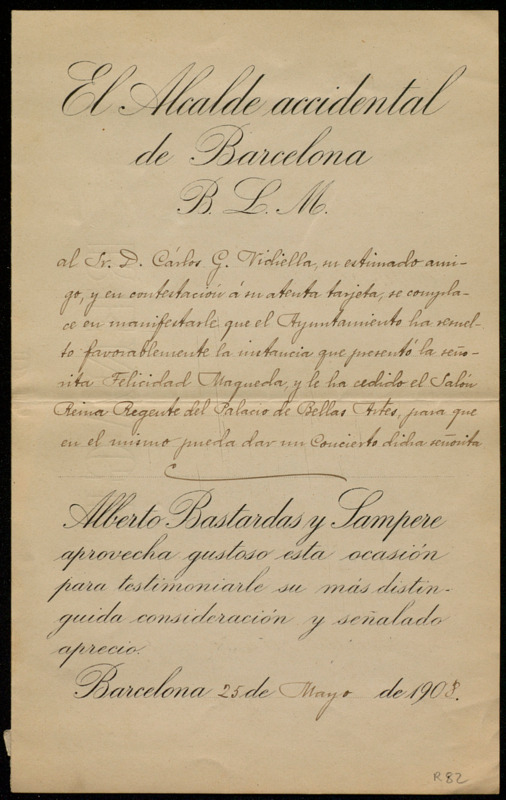 El Alcalde accidental
de Barcelona
B. L. M.
al Sr. D. Cárlos G. Vidiella, su estimado ami-
go, y en contestación á su atenta tarjeta, se compla-
ce en manifestarle que el Ayuntamiento ha resuel-
to favorablemente la instancia que presentó la seño-
rita Felicidad Maqueda, y le ha cedido el Salón
Reina Regente del Palacio de Bellas Artes, para que
en el mismo pueda dar un Concierto dicha señorita
Alberto Bastardas y Sampere
aprovecha gustoso esta ocasión
para testimoniarle su más distin-
guida consideración y señalado
aprecio.
Barcelona 25 de Mayo de 1908.
R. 82